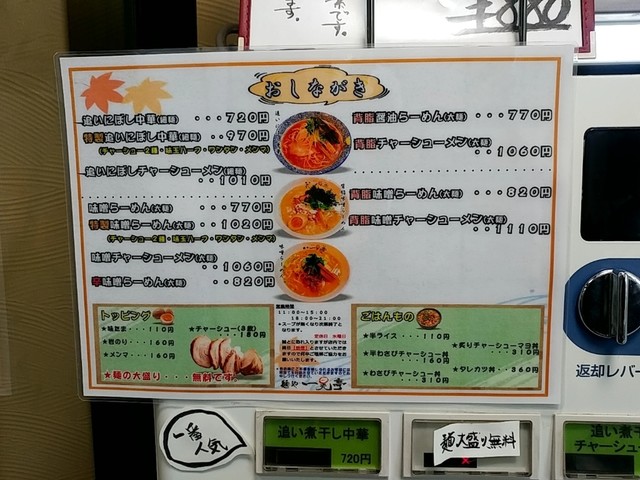 す。
です。
ます。
¥880
おしながき
追いにぼし中華(細麺)・・・720円
特製追いにぼし中華(細麺)・・970円
(チャーシュー2種・味玉ハーフ・ワンタン・メンマ)
追いにぼしチャーシューメン(細麺)
・・1010円
味噌らーめん(太麺)・・・770円
特製味噌らーめん(太麺)・・1020円
(チャーシュー2種・味玉ハーフ・ワンタン・メンマ)
味噌チャーシューメン(太麺)
・・1060円
辛味噌らーめん(太麺)・・820円
背脂醤油らーめん(太麺)・・・770円
背脂チャーシューメン(太麺)
・・1060円
背脂味噌らーめん(太麺)・・・820円
背脂味噌チャーシューメン(太麺)
・・1110円
トッピング
★味玉・・・110円
★岩のり・・160円
★メンマ・・160円
★チャーシュー(3枚)
・・・180円
★麺の大盛り・・・無料です。
営業時間
11:00~15:00
18:00~21:00
*スープが無くなり次第終了と
なります。
定休日 水曜日
ごはんもの
★半ライス・・110円
★半わさびチャーシュー丼
・・・・160円
★わさびチャーシュー丼
・・・・310円
★炙りチャーシューマヨ丼
・・・・310円
★タレカツ丼・・360円
返却レバー
一番人気
追い煮干し中華
720円
麺大盛り無料
追い煮干
チャーシュー